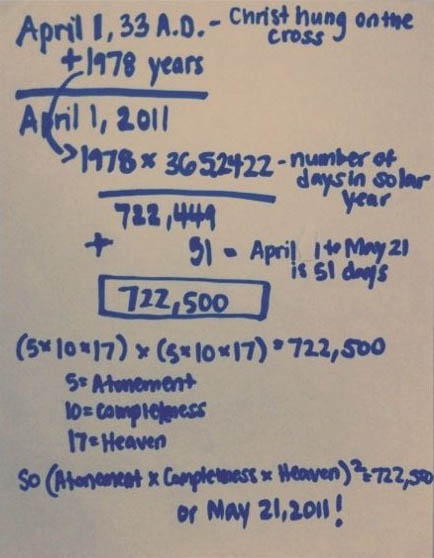 April 1, 33 A.D. - Christ hung on the cross
+1978 years
April 1, 2011
1978 × 3652422 - number of days in solar year
722,449
+ 51 = April 1 to May 21 is 51 days
722,500
(5×10×17) × (5×10×17) = 722,500
5= Atonement
10= Completeness
17= Heaven
So (Atonement × Completeness × Heaven)²=722,500
or May 21, 2011!